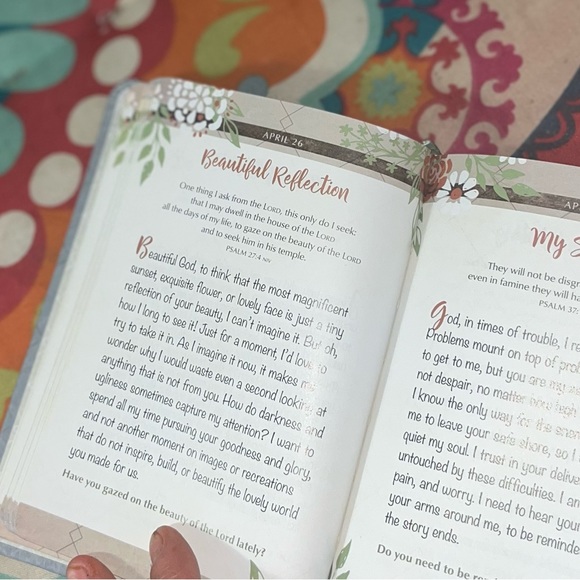 APRIL 26
Beautiful Reflection
One thing I ask from the LORD, this only do I seek:
that I may dwell in the house of the LORD
all the days of my life, to gaze on the beauty of the LORD
and to seek him in his temple.
PSALM 27:4 NIV
Beautiful God, to think that the most magnificent
sunset, exquisite flower, or lovely face is just a tiny
reflection of your beauty, I can't imagine it. But oh,
how I long to see it! Just for a moment, I'd love to
try to take it in. As I imagine it now, it makes me
wonder why I would waste even a second looking at
anything that is not from you. How do darkness and
ugliness sometimes capture my attention? I want to
spend all my time pursuing your goodness and glory,
and not another moment on images or recreations
that do not inspire, build, or beautify the lovely world
you made for us.
Have you gazed on the beauty of the Lord lately?
AP
My S
They will not be disgr
even in famine they will ha
PSALM 37:
God, in times of trouble, I re
Problems mount on top of prob
to get to me, but you are my
not despair, no matter how high
I know the only way for the
me to leave your safe shore, so I
quiet my soul. I trust in your delive
untouched by these difficulties. I am
pain, and worry. I need to hear your
your arms around me, to be reminde
the story ends.
Do you need to be re